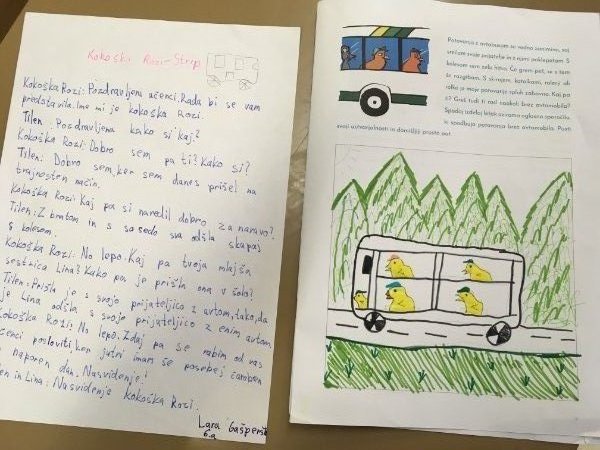 Kokoška Rozi-Strip
Kokoška Rozi: Pozdravljeni učenci. Rada bi se vam
predstavila. Ime mi je kokoška Rozi.
Tilen: Pozdravljena kako si kaj?
Kokoška Rozi: Dobro sem pa ti? Kako si?
Tilen: Dobro sem, ker sem danes prišel na
trajnosten način.
Kokoška Rozi: Kaj pa si naredil dobro za naravo?
Tilen: Z bratom in s sosedo sva odšla skupaj
s kolesom.
Kokoška Rozi: No lepo. Kaj pa tvoja mlajša
sestrica Lina? Kako pa je prišla ona v šolo?
Tilen: Prišla je s svojo prijateljico z avtom, tako, da
je Lina odšla s svojo prijateljico z enim avtom.
Kokoška Rozi: No lepo. Zdaj pa se rabim od vas
učenci posloviti, ker jutri imam še posebej čaroben
naporen dan. Nasvidenje!
en in Lina: Nasvidenje Kokoška Rozi.
Lara Gašperš
6.a
Potovanje z avtobusom so vedno zanimiva, saj
srečam svoje prijatelje in z njimi poklepetam. S
kolesom sem zelo hitra. Če grem peš, se s tem
še razgibam. S skirojem, kotalkami, rolerji ali
rolko je moje potovanje sploh zabavno. Kaj pa
ti? Greš tudi ti rad naokoli brez avtomobila?
avoji ustvarjalnosti in domišljiji prosto pot.